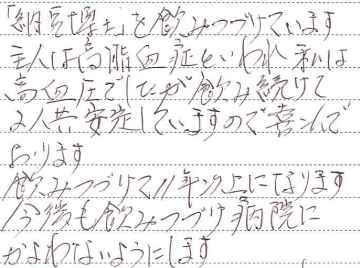 「納豆博士」を飲みつづけています
主人は高脂血症といわれ私は
高血圧でしたが飲み続けて
2人共安定していますので喜んで
おります
飲みつづけて11年以上になります
今後も飲みつづけ病院に
かよわないようにします